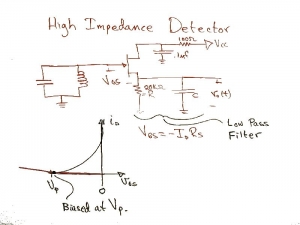 High Impedance Detector
100Ω
Vcc
.1mf
VGS
R
C
Vo(t)
VGS = -ID RS
Low Pass
Filter
iD
VP
VGS
O
Biased at VP.